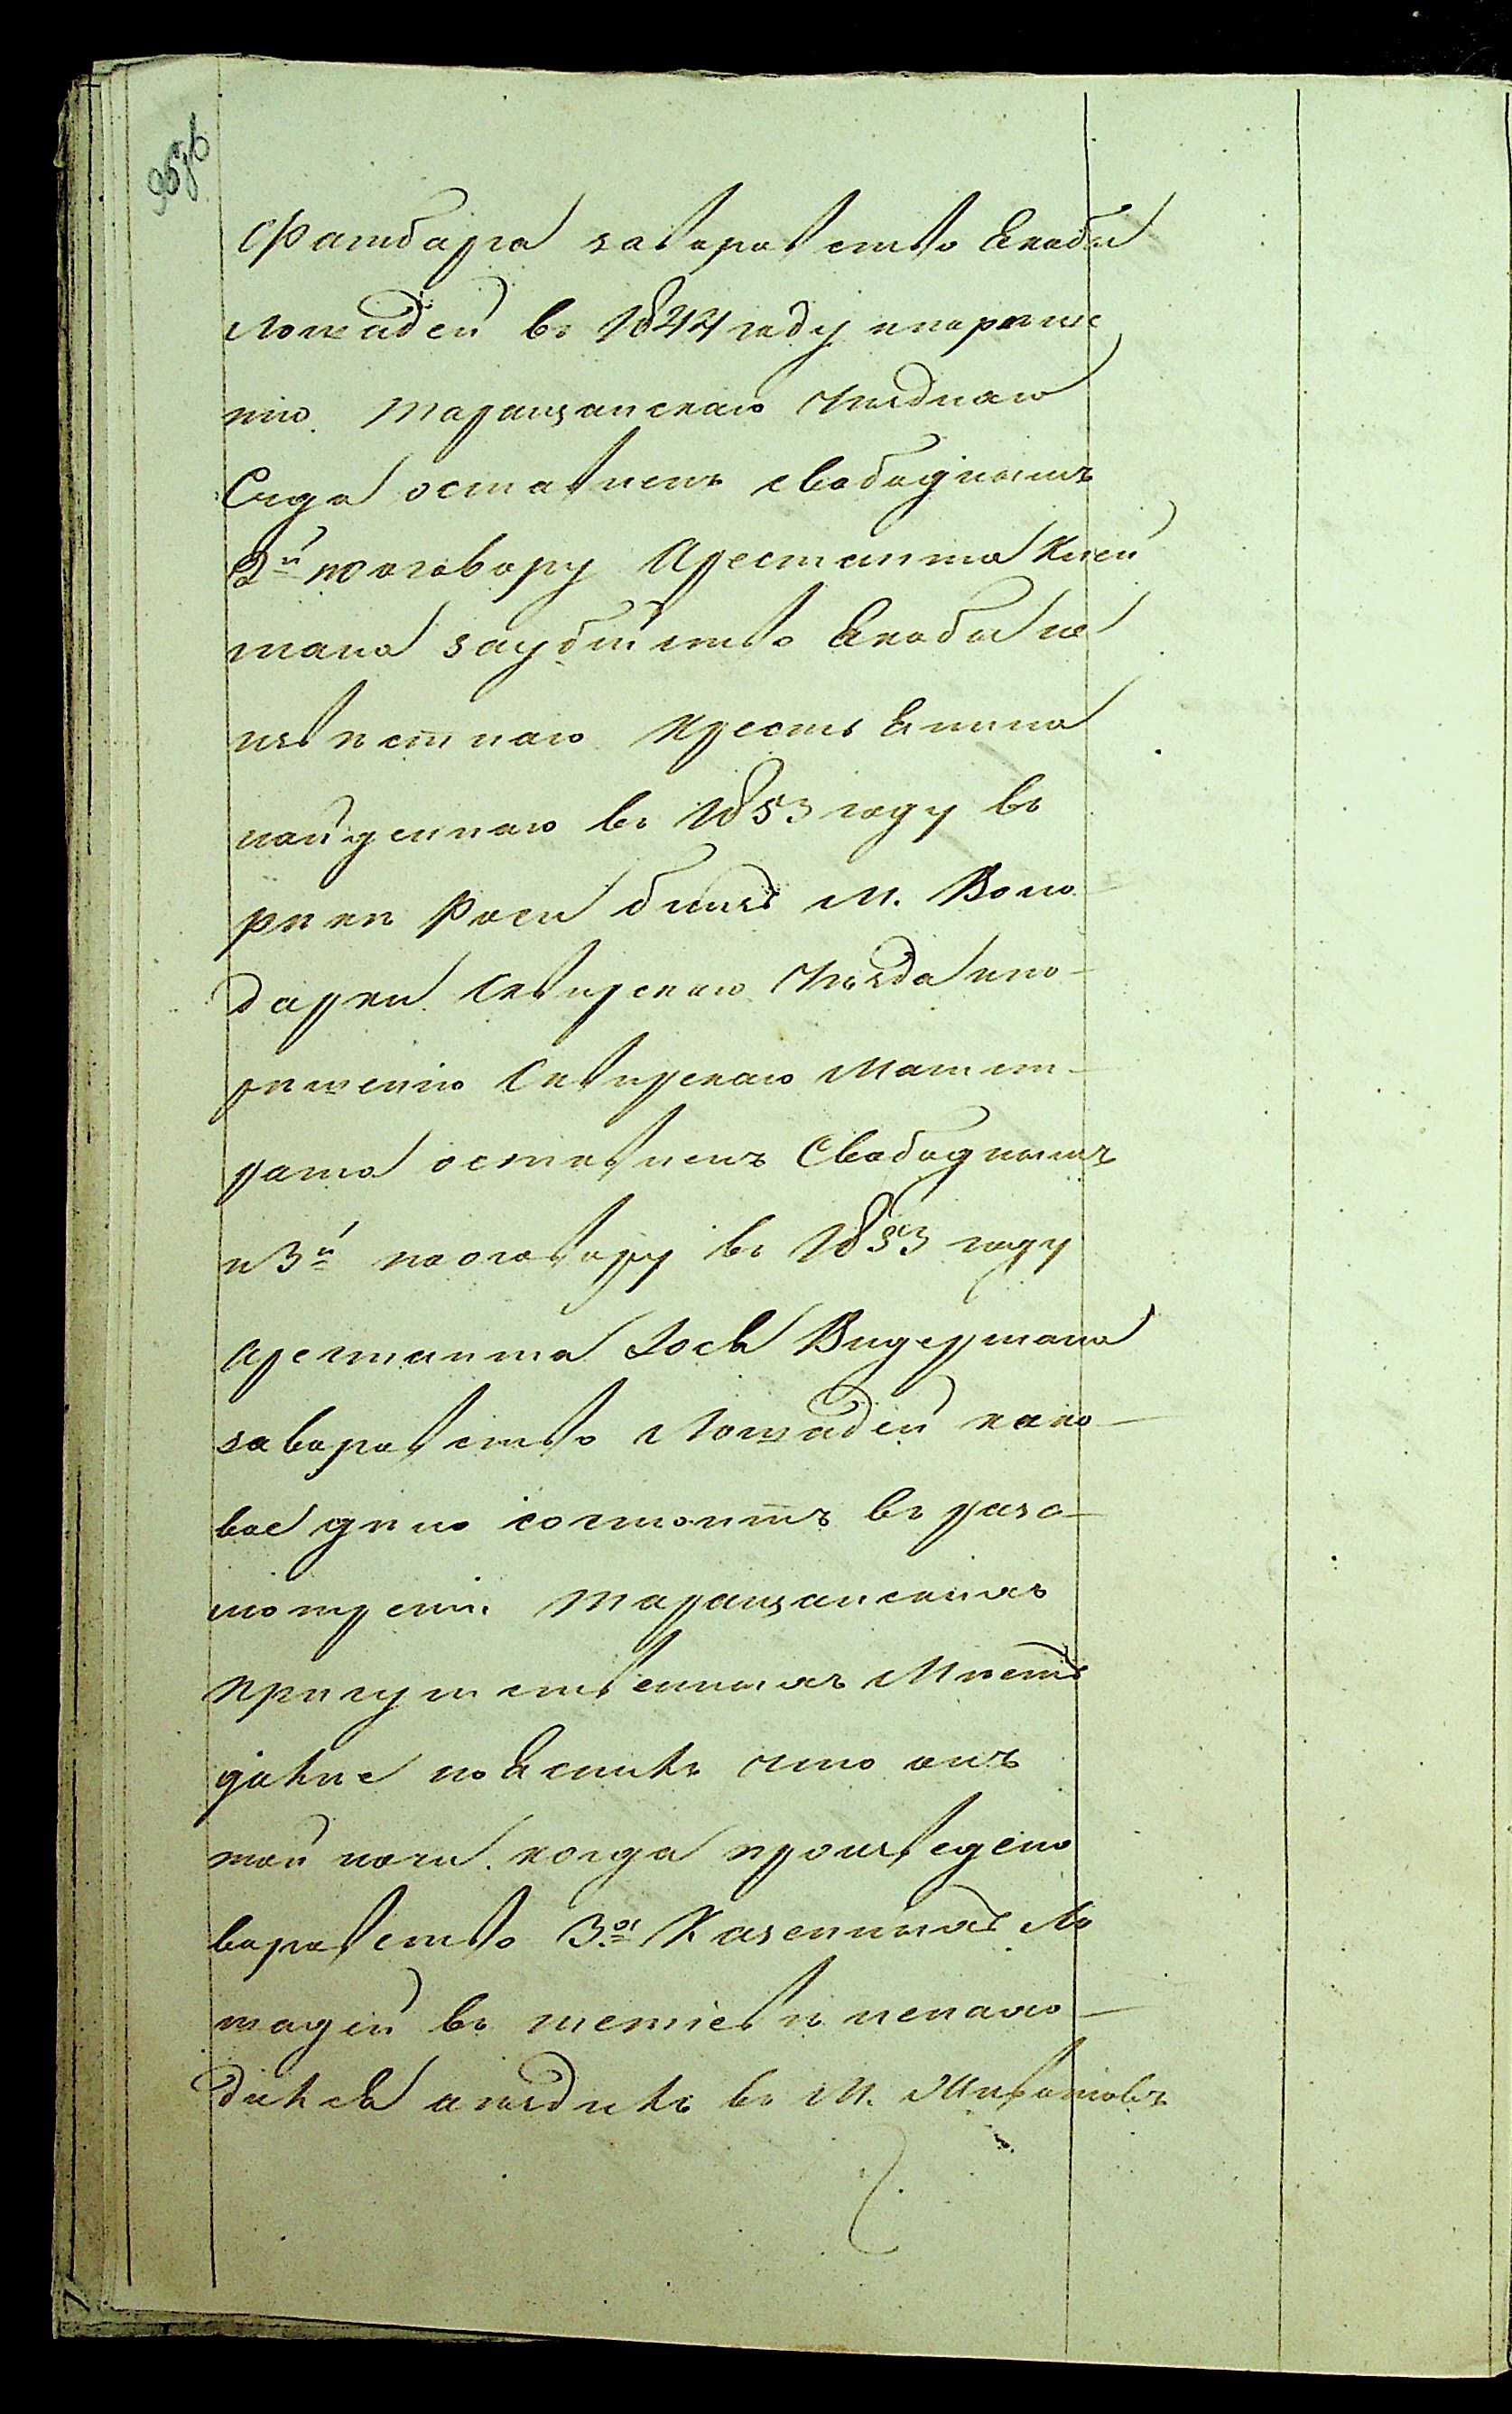 Фатбарга заворовство Якобы
Лошадей въ 1844 году ипореше
нію Таращанскаго Уезднаго
Суда оставленъ свободнымъ
2й пооговору Арестанта Клей
мана заубійство Якобы не
известнаго Крестьянина
найденнаго въ 1853 году въ
реке Роси близъ М. Воло-
дарки Сквирскаго Уезда ипо-
решенію Сквирскаго Магист-
рата оставленъ Свободнымъ
и 3й пооговору въ 1853 году
арестанта Іося Видермана
заворовство Лошадей како-
вое дело состоитъ въ разс-
мотреніи Таращанскихъ
присутственныхъ Местъ
далее пояснилъ что онъ
той ночи когда произведено
воровство 3хъ Казенныхъ Ло
шадей въ Тетиеве ненахо-
дился аездилъ въ М.